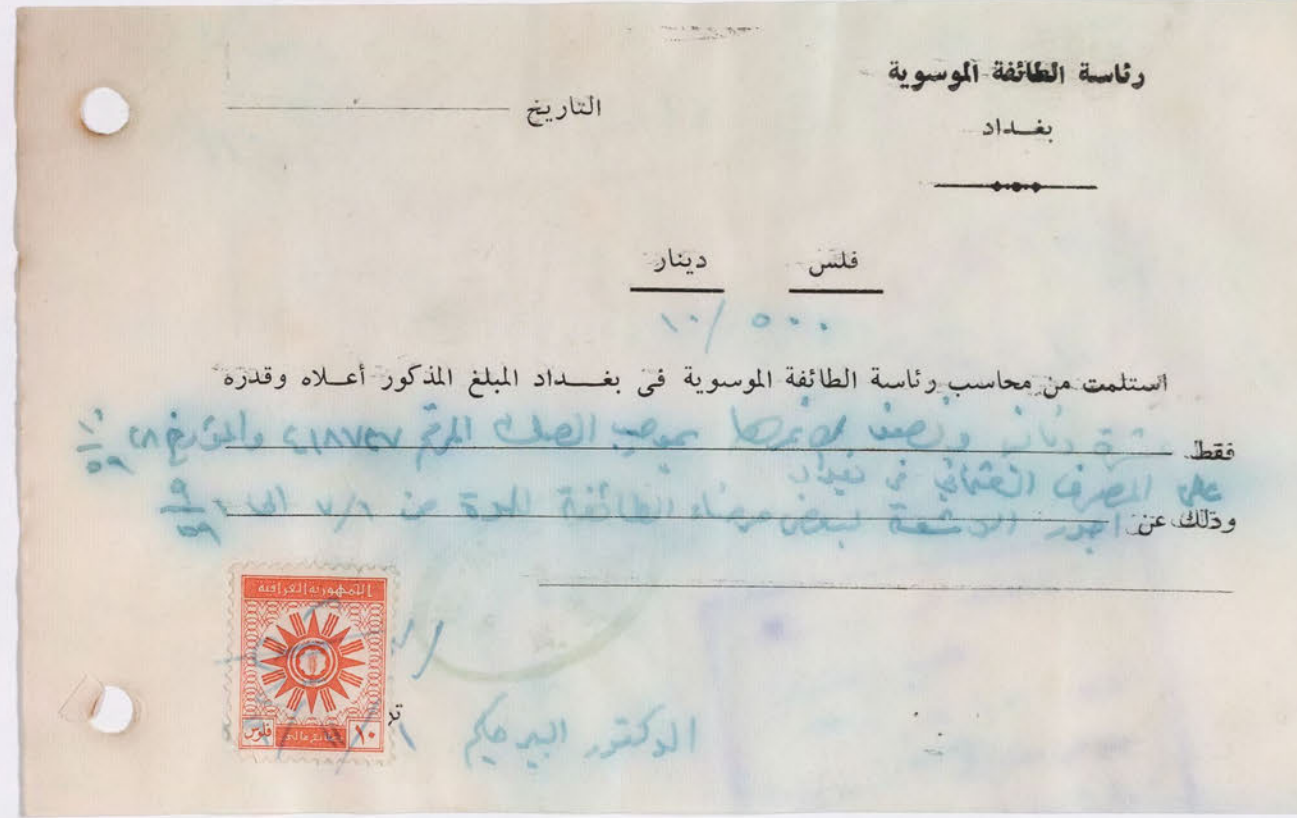 رئاسة الطائفة الموسوية
بغداد
التاريخ
فلس دينار
١٠/٥٠٠
استلمت من محاسب رئاسة الطائفة الموسوية في بغداد المبلغ المذكور أعلاه وقدره
فقط عشرة دنانير ونصف لا غيرها بموجب الصك المرقم والمؤرخ ٢٨/١٠/٥٩
على المصرف العثماني في بغداد
وذلك عن اجور الاشعة لبعض مرضاء الطائفة للمدة من ٧/٦ الى ٩/٥٩
الجمهورية العراقية
١٠ طابع مالي فلوس
الدكتور البير حكيم